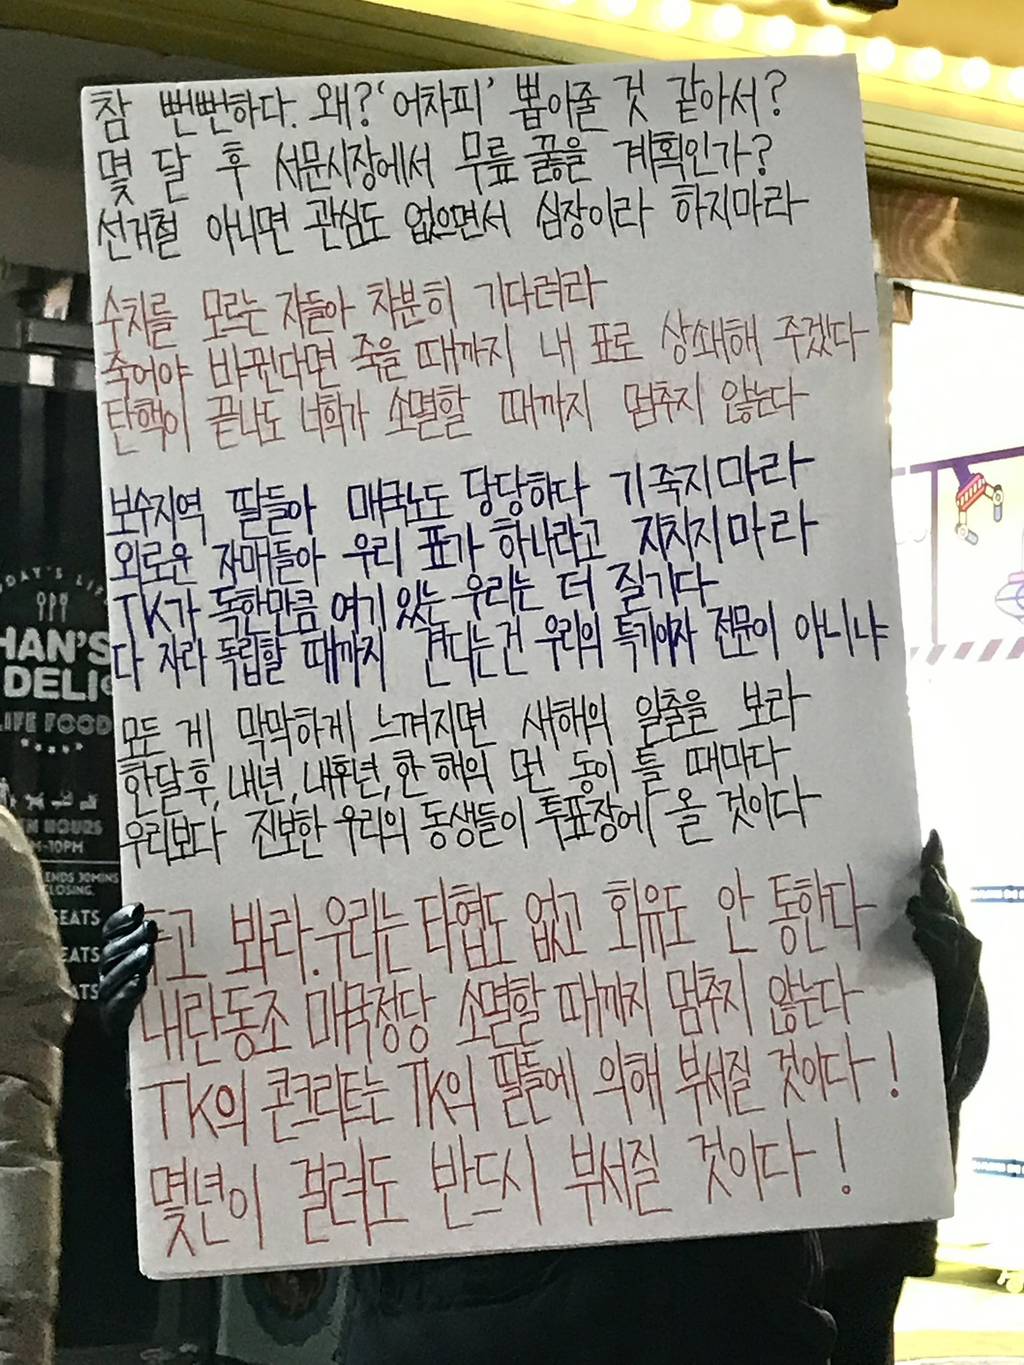 참 뻔뻔하다. 왜? '어차피' 뽑아줄 것 같아서?
몇 달 후 서문시장에서 무릎 꿇을 계획인가?
선거철 아니면 관심도 없으면서 심장이라 하지마라
수치를 모르는 자들아 차분히 기다려라
죽어야 바뀐다면 죽을 때까지 내 표로 상쇄해 주겠다
탄핵이 끝나도 너희가 소멸할 때까지 멈추지 않는다
보수지역 딸들아 매국노도 당당하다 기죽지마라
외로운 자매들아 우리 표가 하나라고 지치지마라
TK가 독한만큼 여기 있는 우리는 더 질기다
다 자라 독립할 때까지 견디는건 우리의 특기이자 전문이 아니냐
모든 게 막막하게 느껴지면 새해의 일출을 보라
한달 후, 내년, 내후년, 한 해의 먼 동이 틀 때마다
우리보다 진보한 우리의 동생들이 투표장에 올 것이다
두고 봐라. 우리는 타협도 없고 회유도 안 통한다
내란동조 매국정당 소멸할 때까지 멈추지 않는다
TK의 콘크리트는 TK의 딸들에 의해 부서질 것이다!
몇년이 걸려도 반드시 부서질 것이다!
HAN'S
DELI
LIFE FOOD
HOURS
-10PM
ENDS 30MINS
CLOSING.
EATS
EATS